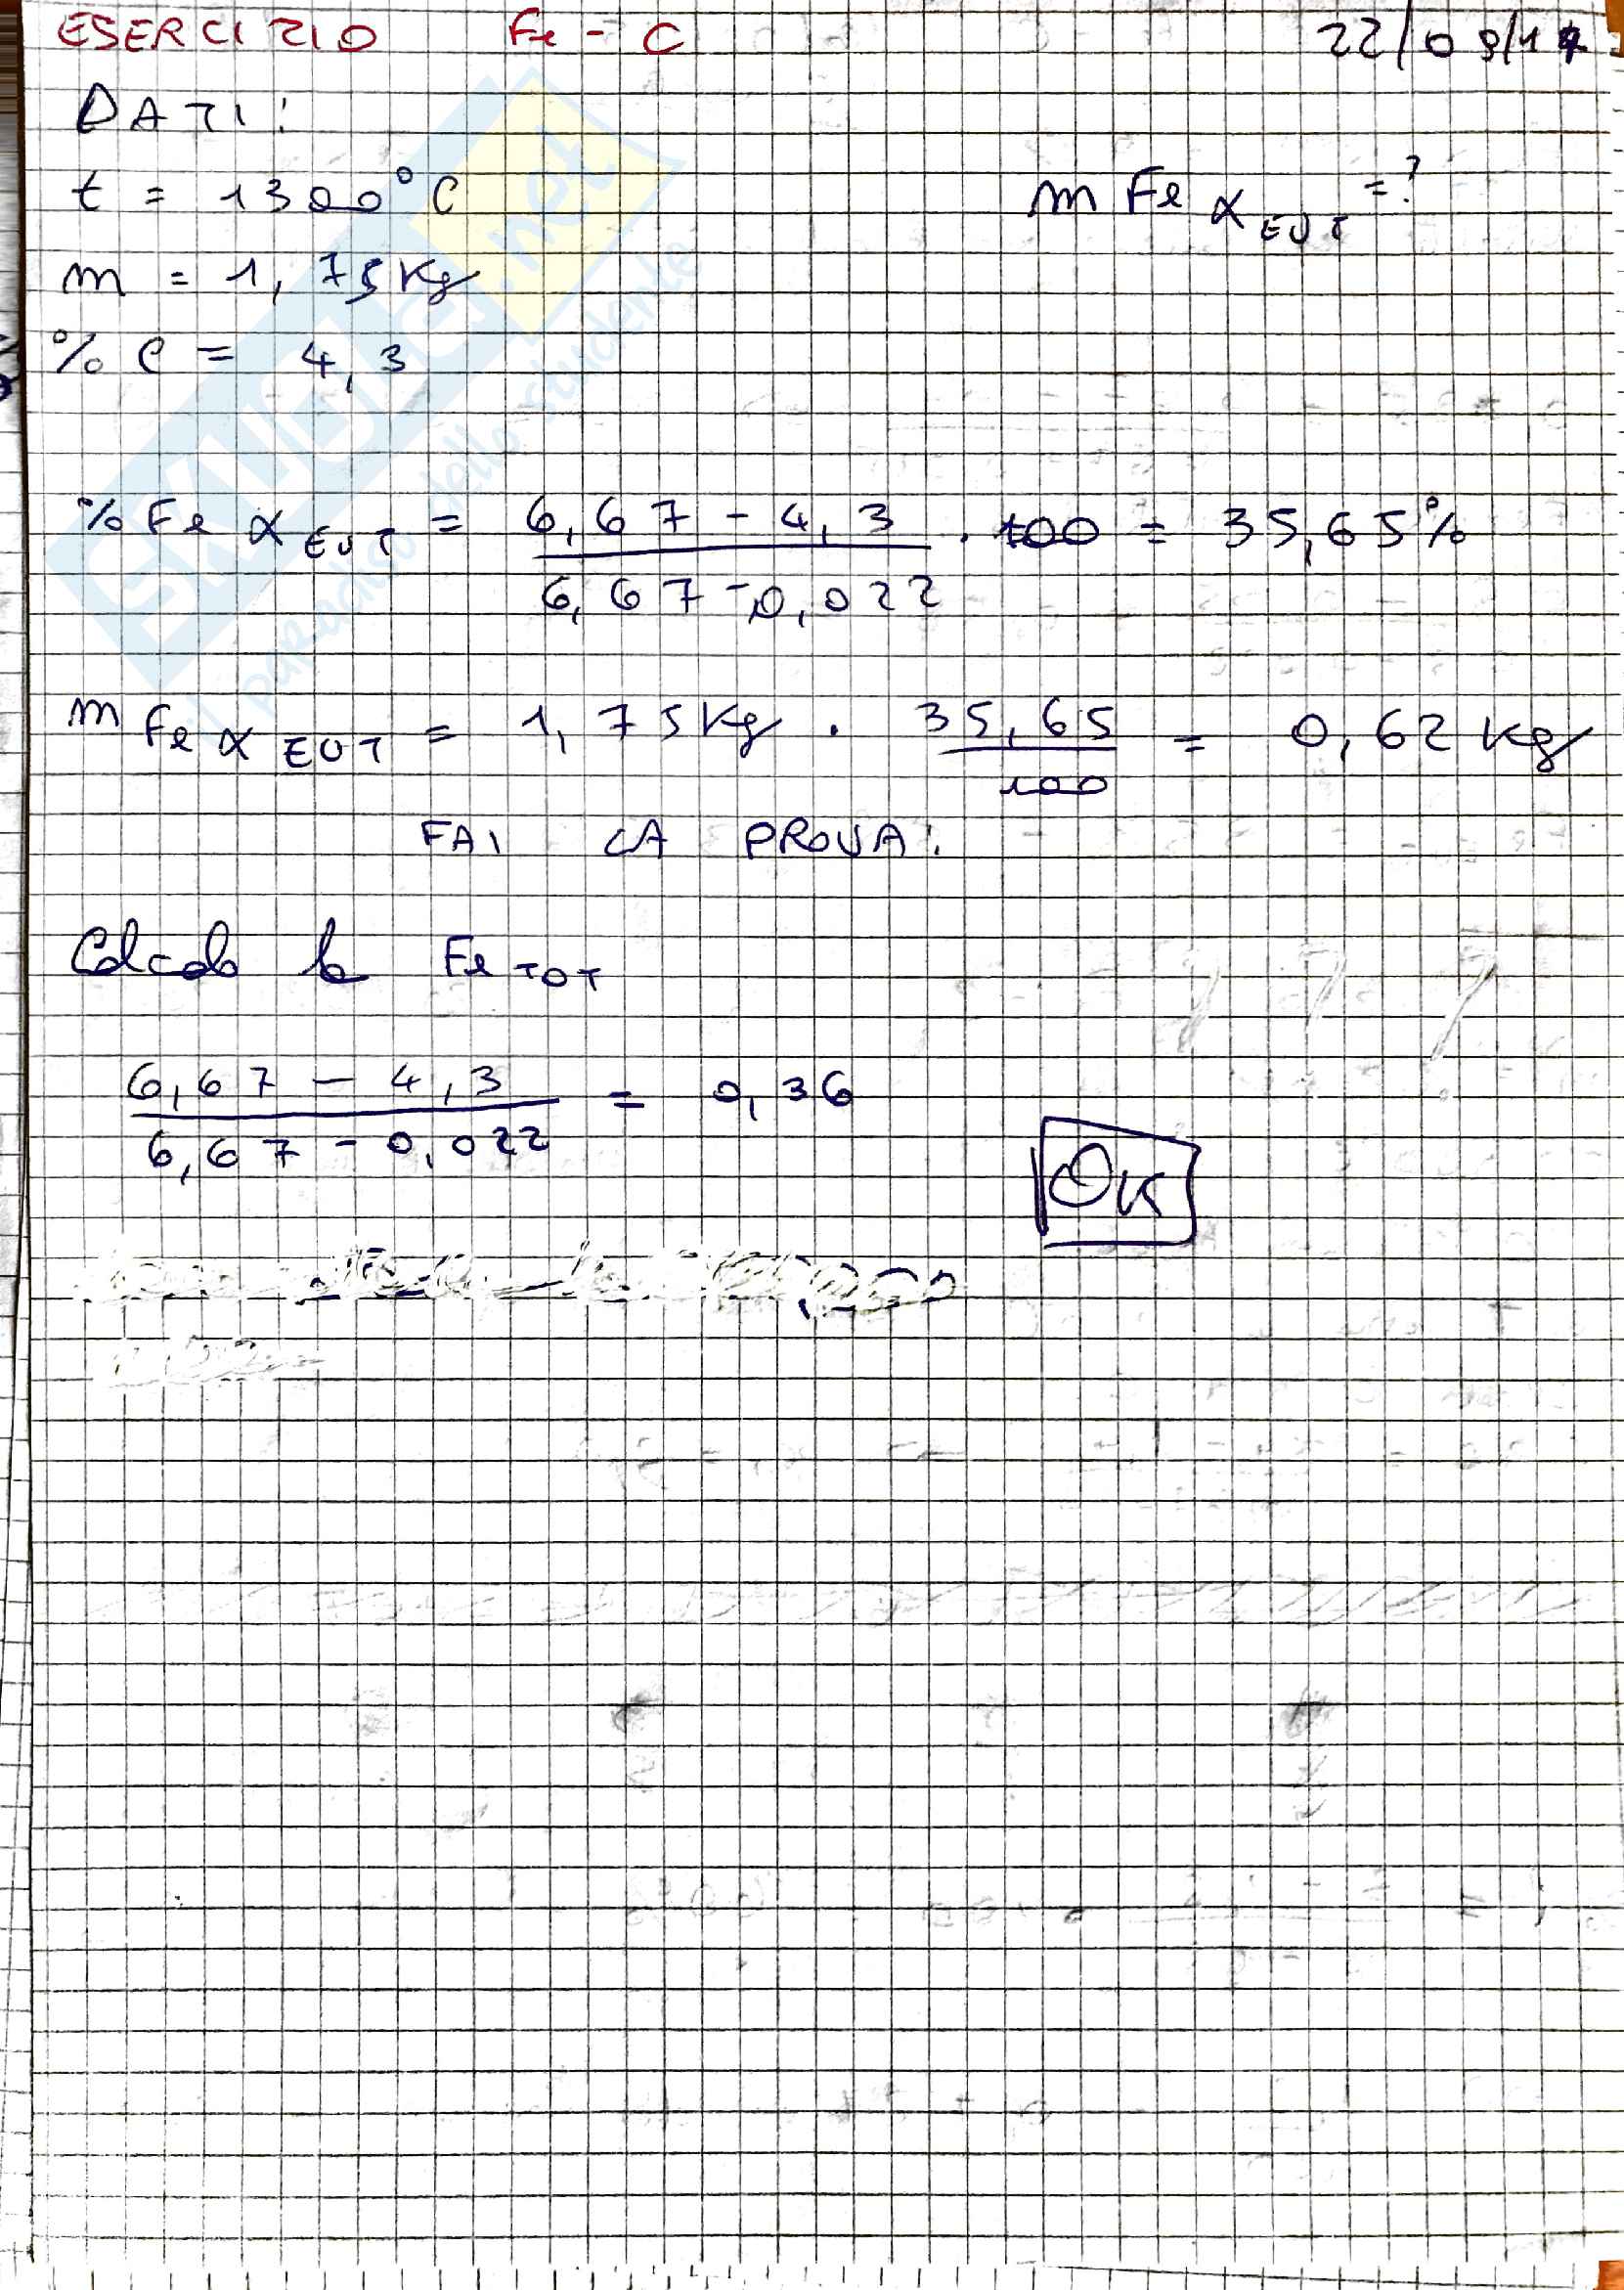 ESERCIZIO Fe - C 22/09/17
DATI:
t = 1300°C m Fe α EUT = ?
m = 1,75 Kg
% C = 4,3
% Fe α EUT = 6,67 - 4,3 / 6,67 - 0,022 · 100 = 35,65%
m Fe α EUT = 1,75 Kg · 35,65 / 100 = 0,62 kg
FAI LA PROVA:
Calcolo la Fe TOT
6,67 - 4,3 / 6,67 - 0,022 = 0,36
OK
SKUOLA.net
il paradiso dello studente